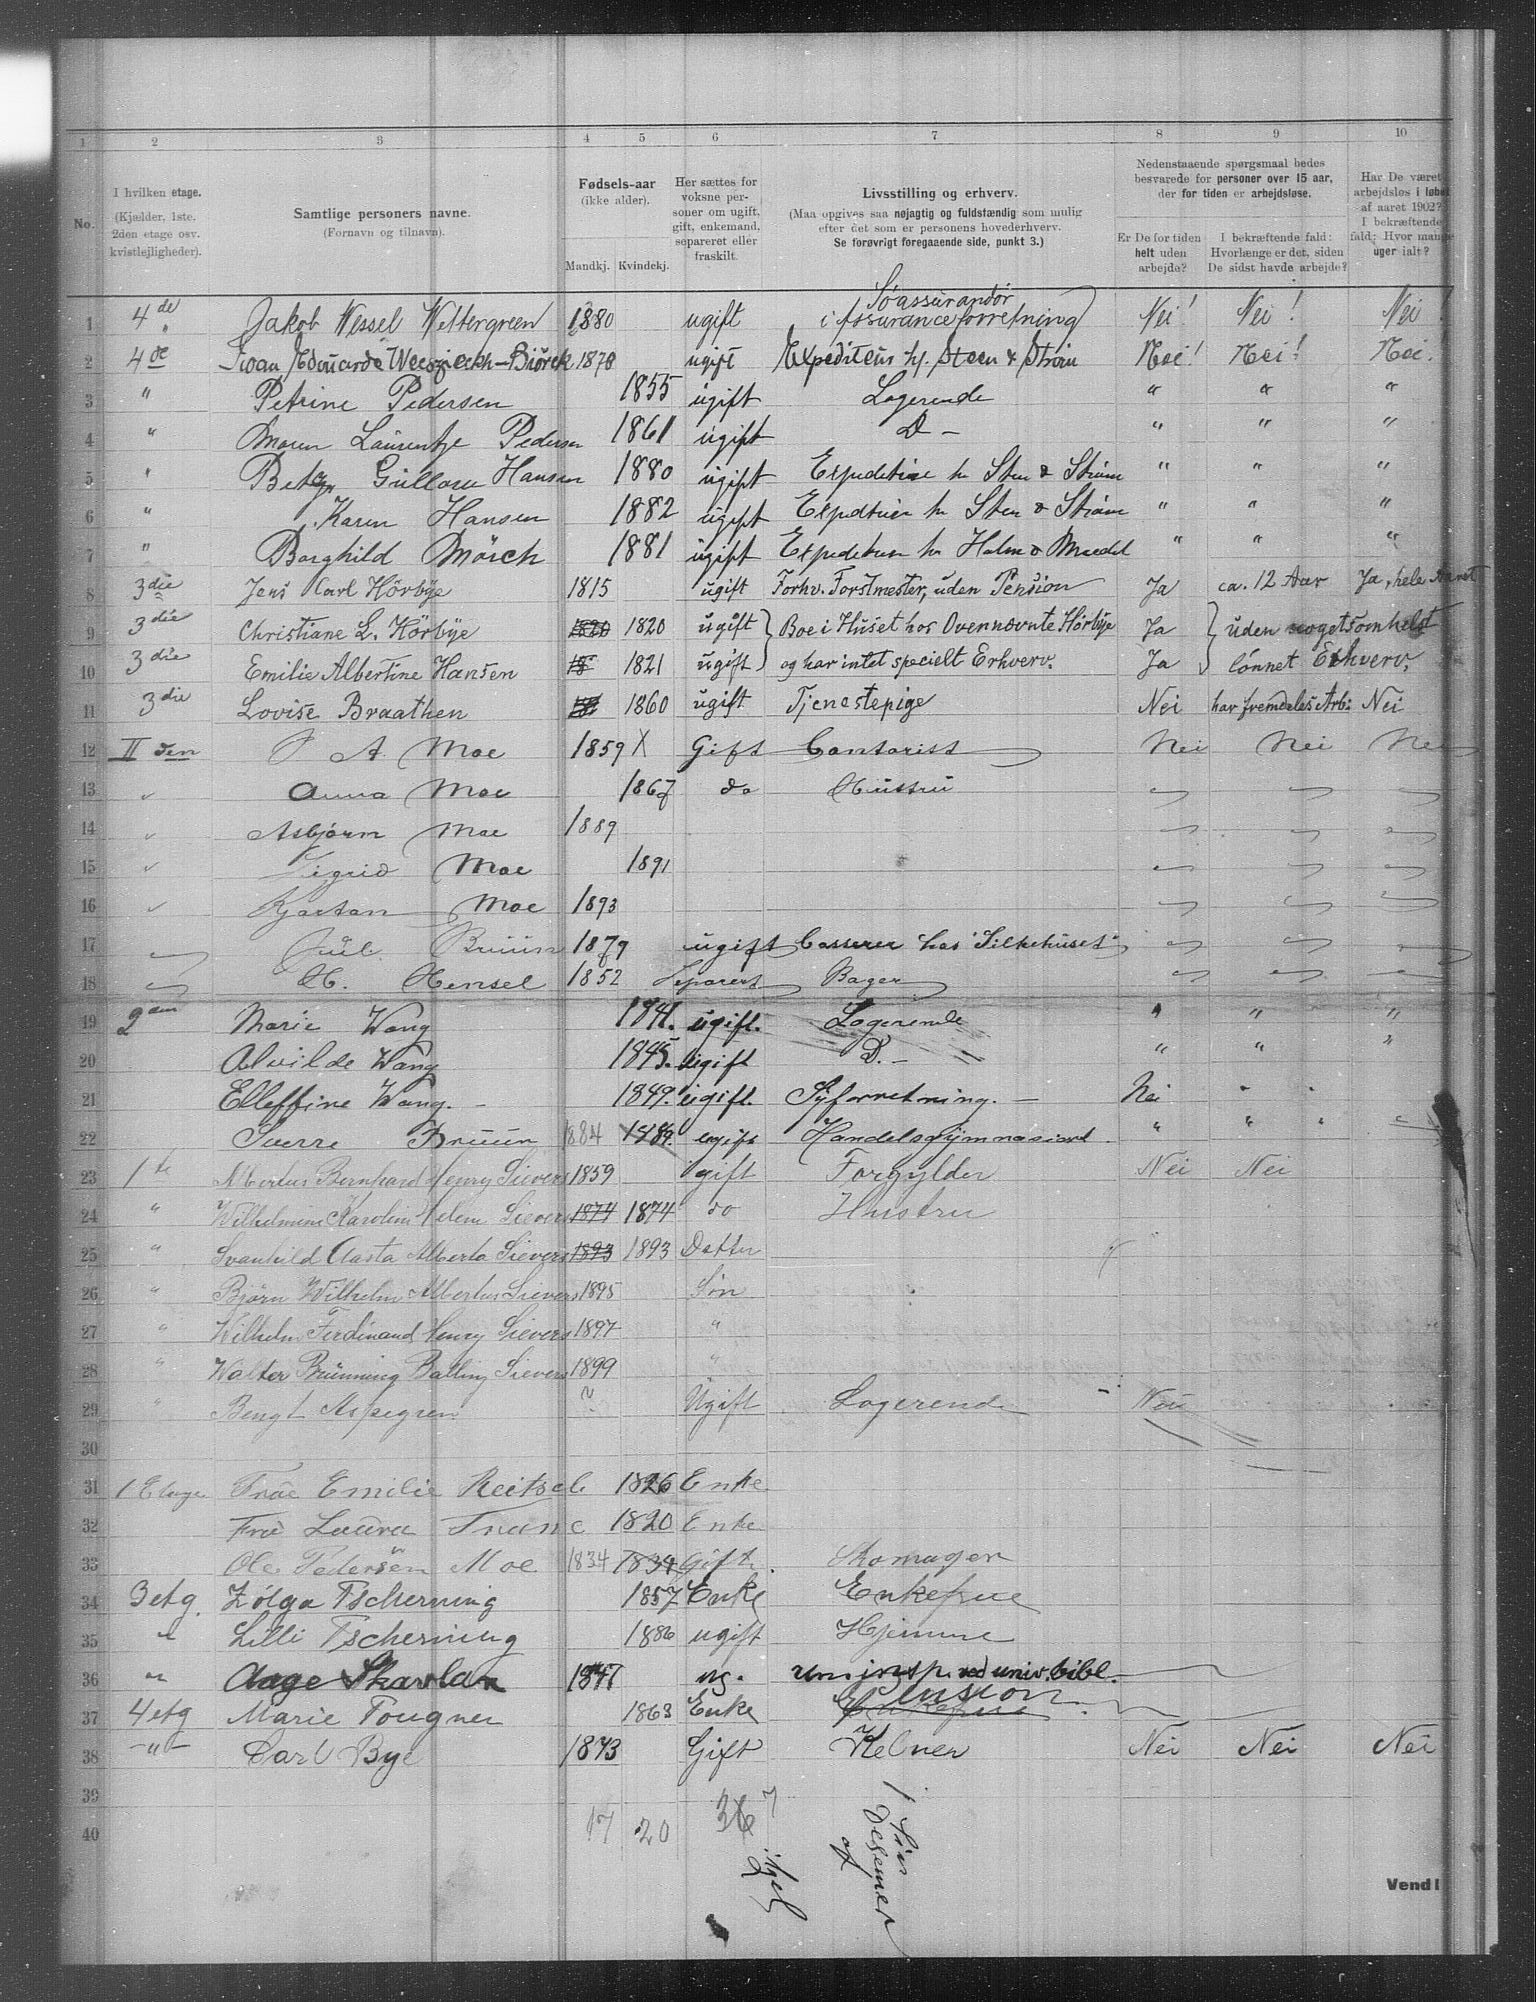 1 2 3 4 5 6 7 8 9 10
No.
I hvilken etage.
(Kjælder, 1ste.
2den etage osv.
kvistlejligheder).
Samtlige personers navne.
(Fornavn og tilnavn).
Fødsels-aar
(ikke alder).
Mandkj. Kvindekj.
Her sættes for
voksne per-
soner om ugift,
gift, enkemand,
separeret eller
fraskilt.
Livsstilling og erhverv.
(Maa opgives saa nøjagtig og fuldstændig som mulig
efter det som er personens hovederhverv.
Se forøvrigt foregaaende side, punkt 3.)
Nedenstaaende spørgsmaal bedes
besvarede for personer over 15 aar,
der for tiden er arbejdsløse.
Er De for tiden
helt uden
arbejde?
I bekræftende fald:
Hvorlænge er det, siden
De sidst havde arbejde?
Har De været
arbejdsløs i løbet
af aaret 1902?
I bekræftende
fald: Hvor mange
uger ialt?
Søassurandør
1 4de Jakob Wessel Wettergreen 1880 ugift i Assuranceforretning Nei! Nei! Nei!
2 4de 1878 ugift Expediteus hf. Steen & Strøm Nei! Nei! Nei!
3 " Petrine Pedersen 1855 ugift Logerende " " "
4 " Maren Laurentze Pedersen 1861 ugift D— " " "
5 " Hansen 1880 ugift Sten & Strøm " " "
6 " Karen Hansen 1882 ugift Sten & Strøm " " "
7 " Borghild Mörch 1881 ugift Holm & " " "
8 3die Jens Carl Hörbÿe 1815 ugift Forhv. Forstmester, uden Pension Ja ca. 12 Aar Ja, hele Aaret
9 3die Christiane L. Hörbÿe 1820 1820 ugift Boe i Huset hos Ovennævnte Hörbÿe Ja uden nogetsomhelst
10 3die Emilie Albertine Hansen 18 1821 ugift og har intet specielt Erhverv. Ja lönnet Erhverv.
11 3die Lovise Braathen 1860 ugift Tjenestepige Nei har fremdeles Arb: Nei
12 II den P A Moe 1859 X Gift Contorist Nei Nei Nei
13 Anna Moe 1867 do Hustru
14 Asbjørn Moe 1889
15 Sigrid Moe 1891
16 Kjartan Moe 1893
17 Juul Bruun 1879 ugift Casserer hos "Silkehuset"
18 H. Hensel 1852 Separert Bager
19 2den Marie Wang 1841. ugift. Logerende " " "
20 Alvilde Wang 1845. ugift D.— " " "
21 Elleffine Wang.— 1849. ugift. Syforretning.— Nei " "
22 Sverre Bruun 1884 1889. ugift Handelsgymnasiast. " " "
23 1te Albertus Bernhard Henry Sievers 1859 gift Forgylder Nei Nei
24 " Wilhelmine Karoline Helene Sievers 1874 1874 do Hustru
25 " Svanhild Aasta Alberta Sievers 1893 1893 Datter
26 " Bjørn Wilhelm Albertus Sievers 1895 Søn
27 " Wilhelm Ferdinand Henry Sievers 1897 "
28 " Walter Brünning Balling Sievers 1899 "
29 " Bengt Aspegren ? Ugift Logerende - Nei
30
31 1 Etage Frue Emilie 1826 Enke
32 Frue Laura Trane 1820 Enke
33 Ole Pedersen Moe 1834 1834 Gift. Skomager
34 3 etg. Zølga Tscherning 1857 Enke Enkefrue
35 " Lilli Tscherning 1886 ugift Hjemme
36 " Aage Skavlan 1847 ug. univ. bibl.
37 4 etg Marie Fougner 1863 Enke Enkefrue
38 —"— Carl Bye 1873 Gift Kelner Nei Nei Nei
39
40 17 20 36 7
Vend!